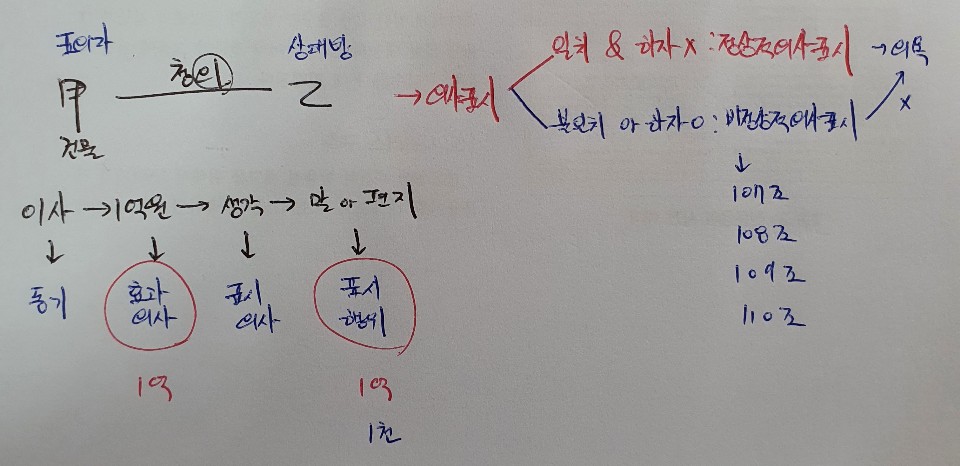 표의자
상대방
甲
청약
乙
건물
→의사표시
일치 & 하자 x : 정상적의사표시 →의욕
불일치 or 하자 o : 비정상적의사표시
x
↓
107조
108조
109조
110조
이사 → 1억원 → 생각 → 말 or 편지
↓ ↓ ↓ ↓
동기 효과의사 표시의사 표시행위
1억 1억
1천